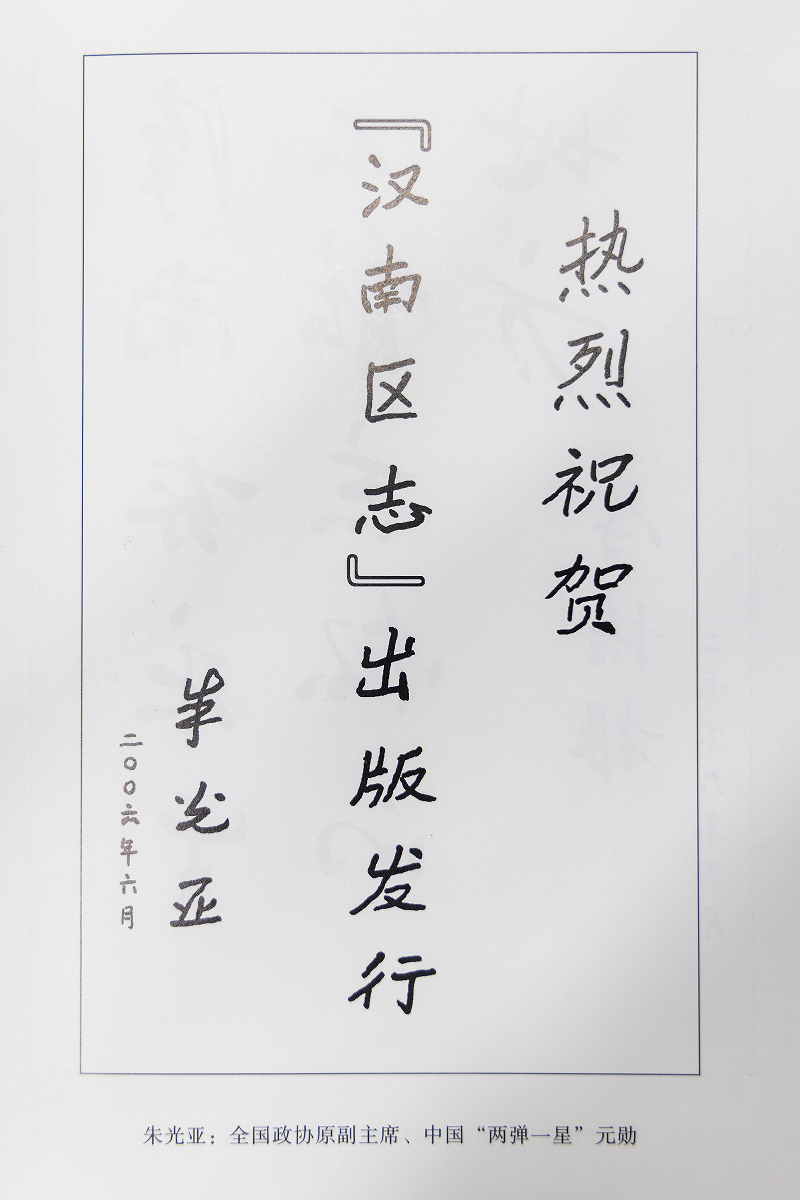 热烈祝贺
『汉南区志』出版发行
朱光亚
二〇〇六年六月
朱光亚：全国政协原副主席、中国“两弹一星”元勋